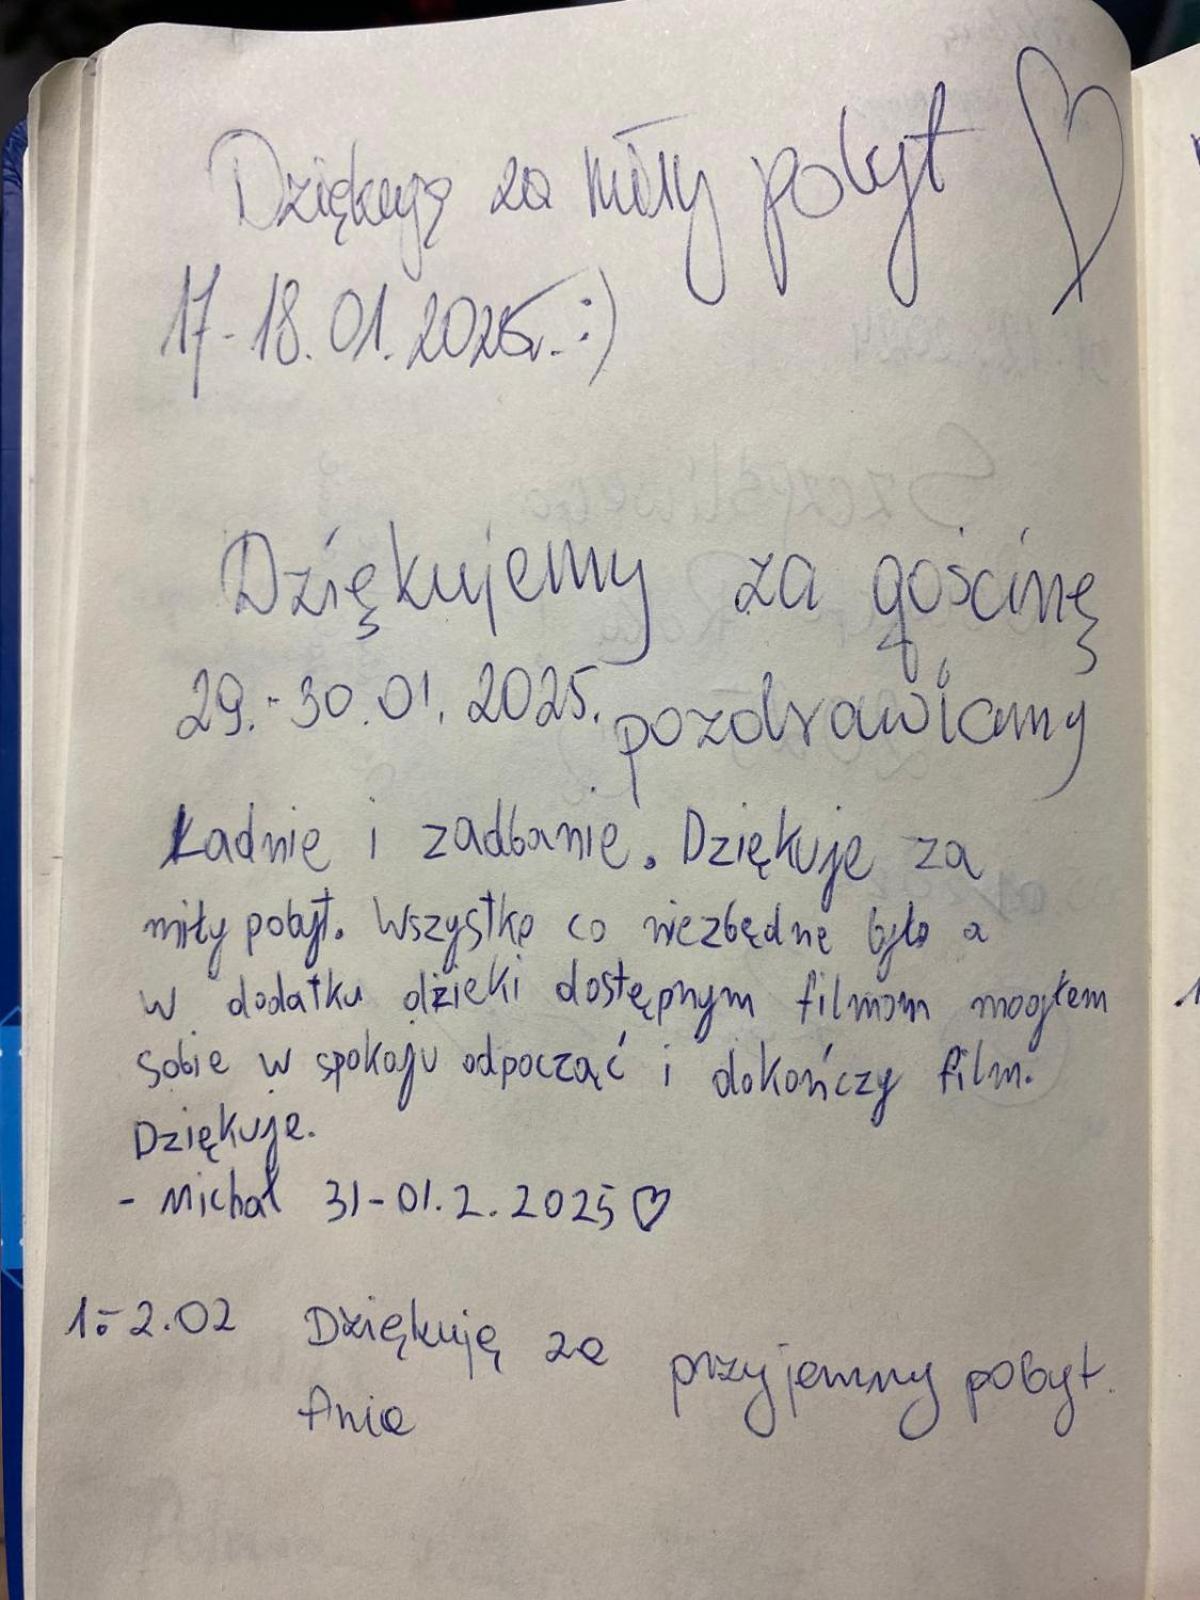 Dziękuję za miły pobyt
17-18.01.2025r. :)
Dziękujemy za gościnę
29.-30.01.2025. pozdrawiamy
Ładnie i zadbanie. Dziękuje za
miły pobyt. Wszystko co niezbędne było a
w dodatku dzięki dostępnym filmom mogłem
sobie w spokoju odpocząć i dokończy film.
Dziękuje.
- Michał 31-01.2.2025 ♡
1-2.02 Dziękuję za przyjemny pobyt.
Ania